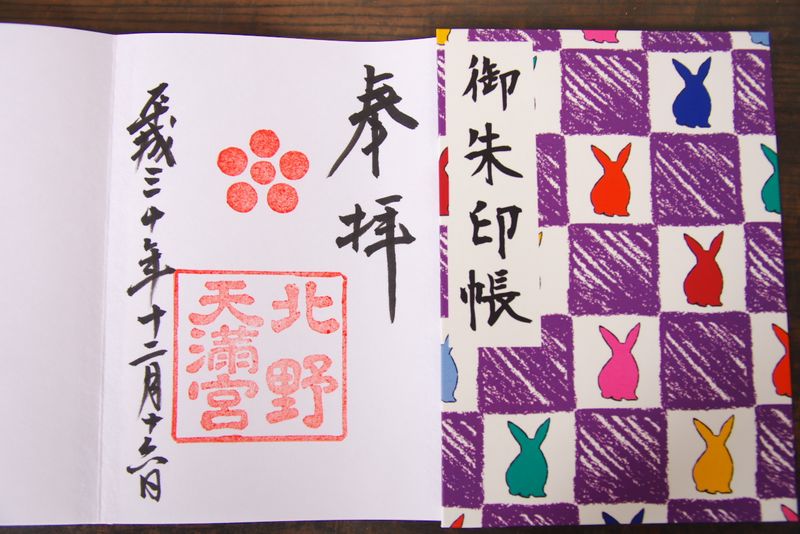 御朱印帳
奉拝
北野
天満宮
平成三十年十二月十六日